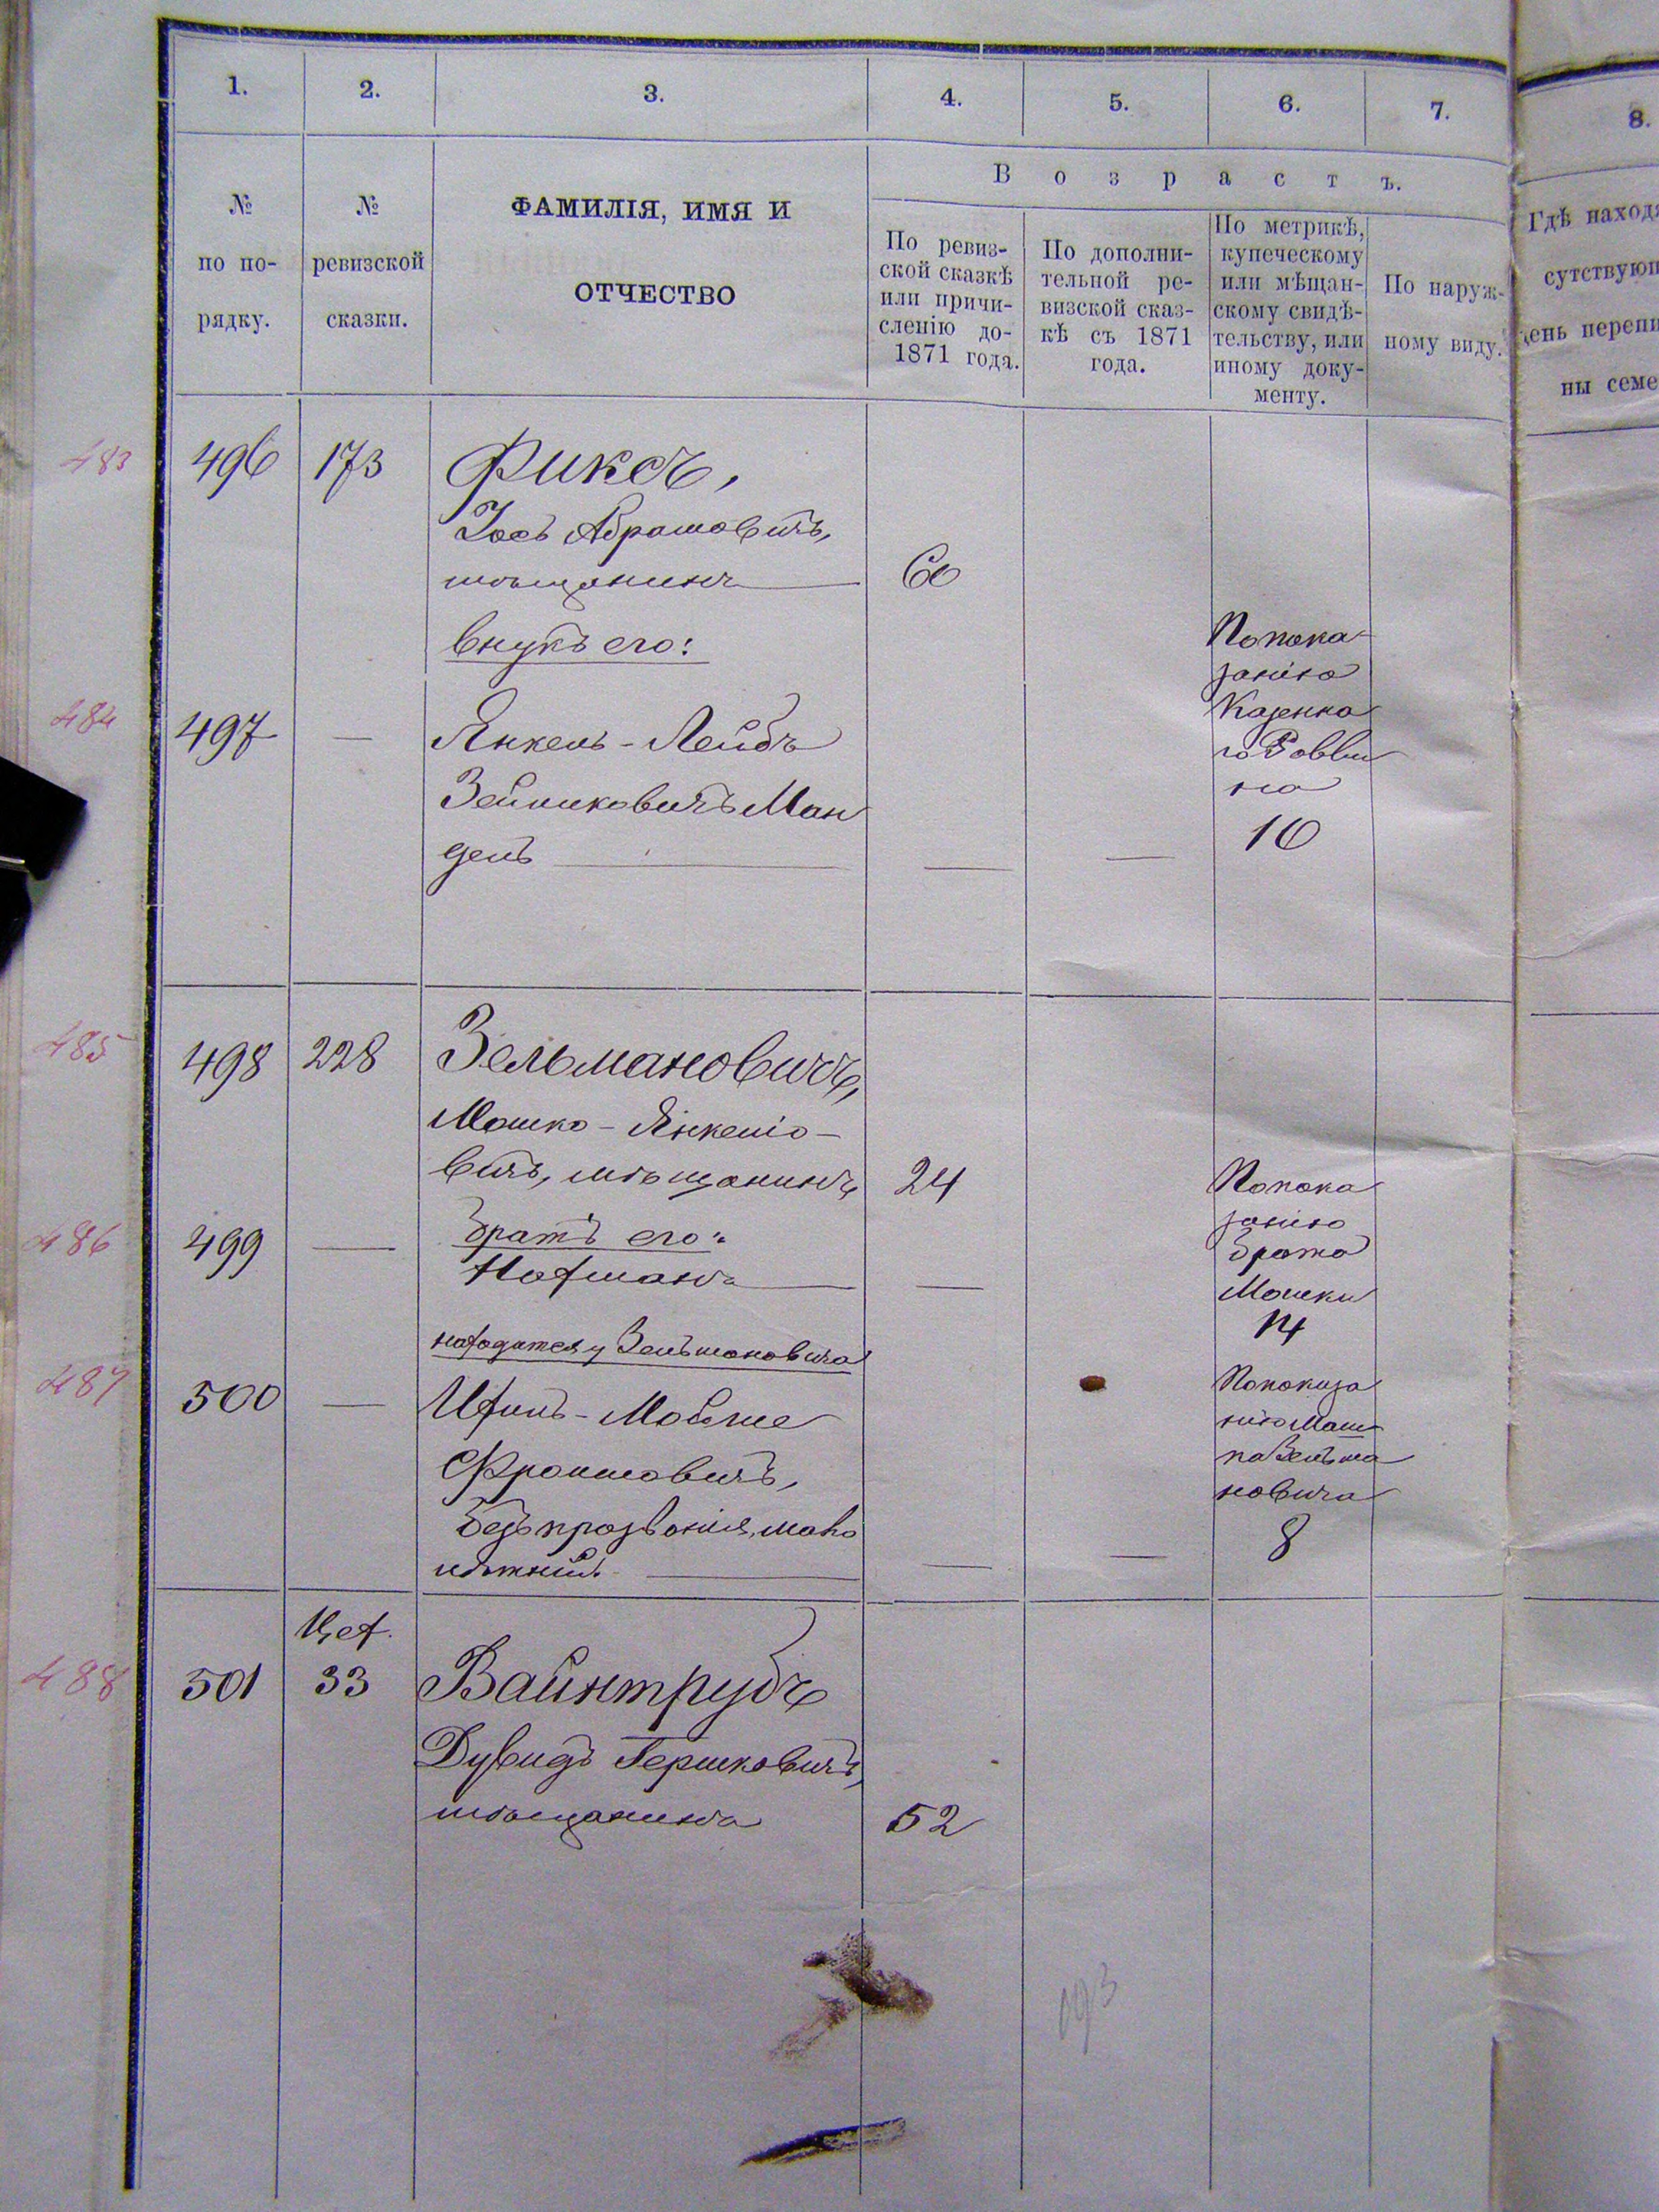 1. 2. 3. 4. 5. 6. 7. 8.
№ по по-рядку.
№ ревизской сказки.
ФАМИЛІЯ, ИМЯ И
ОТЧЕСТВО
Возрастъ.
По ревиз-
ской сказкѣ
или причи-
сленію до
1871 года.
По дополни-
тельной ре-
визской сказ-
кѣ съ 1871
года.
По метрикѣ,
купеческому
или мѣщан-
скому свидѣ-
тельству, или
иному доку-
менту.
По наруж-
ному виду.
483 496 173 Фиксъ,
Іосъ Абрамовичъ,
мѣщанинъ 60
внукъ его:
484 497 — Янкель-Лейбъ
Зейликовичъ Ман
дель — —
По пока
занію
Казенна
го Равви
на
16
485 498 228 Зельмановичъ,
Мошко-Янкеліо-
вичъ, мѣщанинъ 24
486 499 — братъ его:
Нахманъ —
По пока
занію
брата
Мошки
14
находится у Зельмановича
487 500 — Ицикъ-Мойше
Фроимовичъ,
безъ прозванія, мало
лѣтній. — —
По показа
нію Мош
ка Зельма
новича
8
Цех.
488 501 33 Вайнтрубъ
Дувидъ Гершковичъ,
мѣщанинъ 52